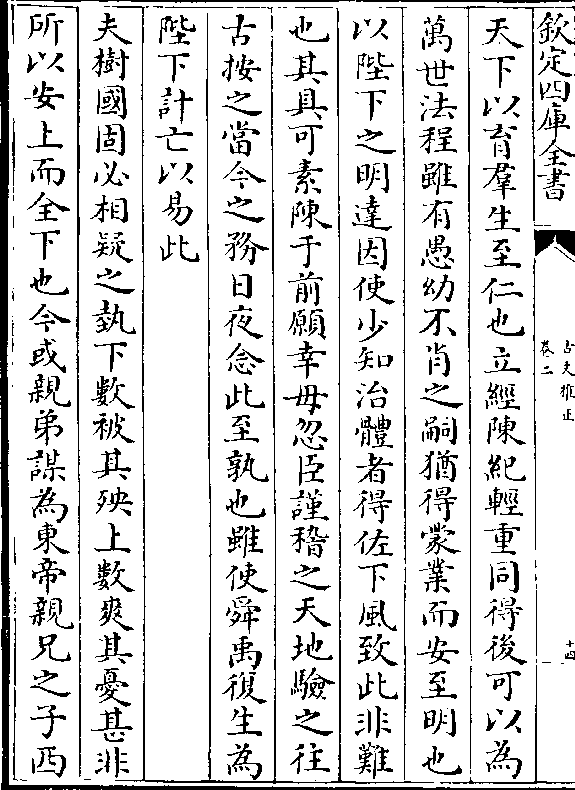 欽定四庫全書
古文雅正
卷二
十四
天下以育羣生至仁也立經陳紀輕重同得後可以為
萬世法程雖有愚幼不肖之嗣猶得蒙業而安至明也
以陛下之明達因使少知治體者得佐下風致此非難
也其具可素陳于前願幸毋忽臣謹稽之天地驗之往
古按之當今之務日夜念此至孰也雖使舜禹復生為
陛下計亡以易此
夫樹國固必相疑之埶下數被其殃上數爽其憂甚非
所以安上而全下也今或親弟謀為東帝親兄之子西